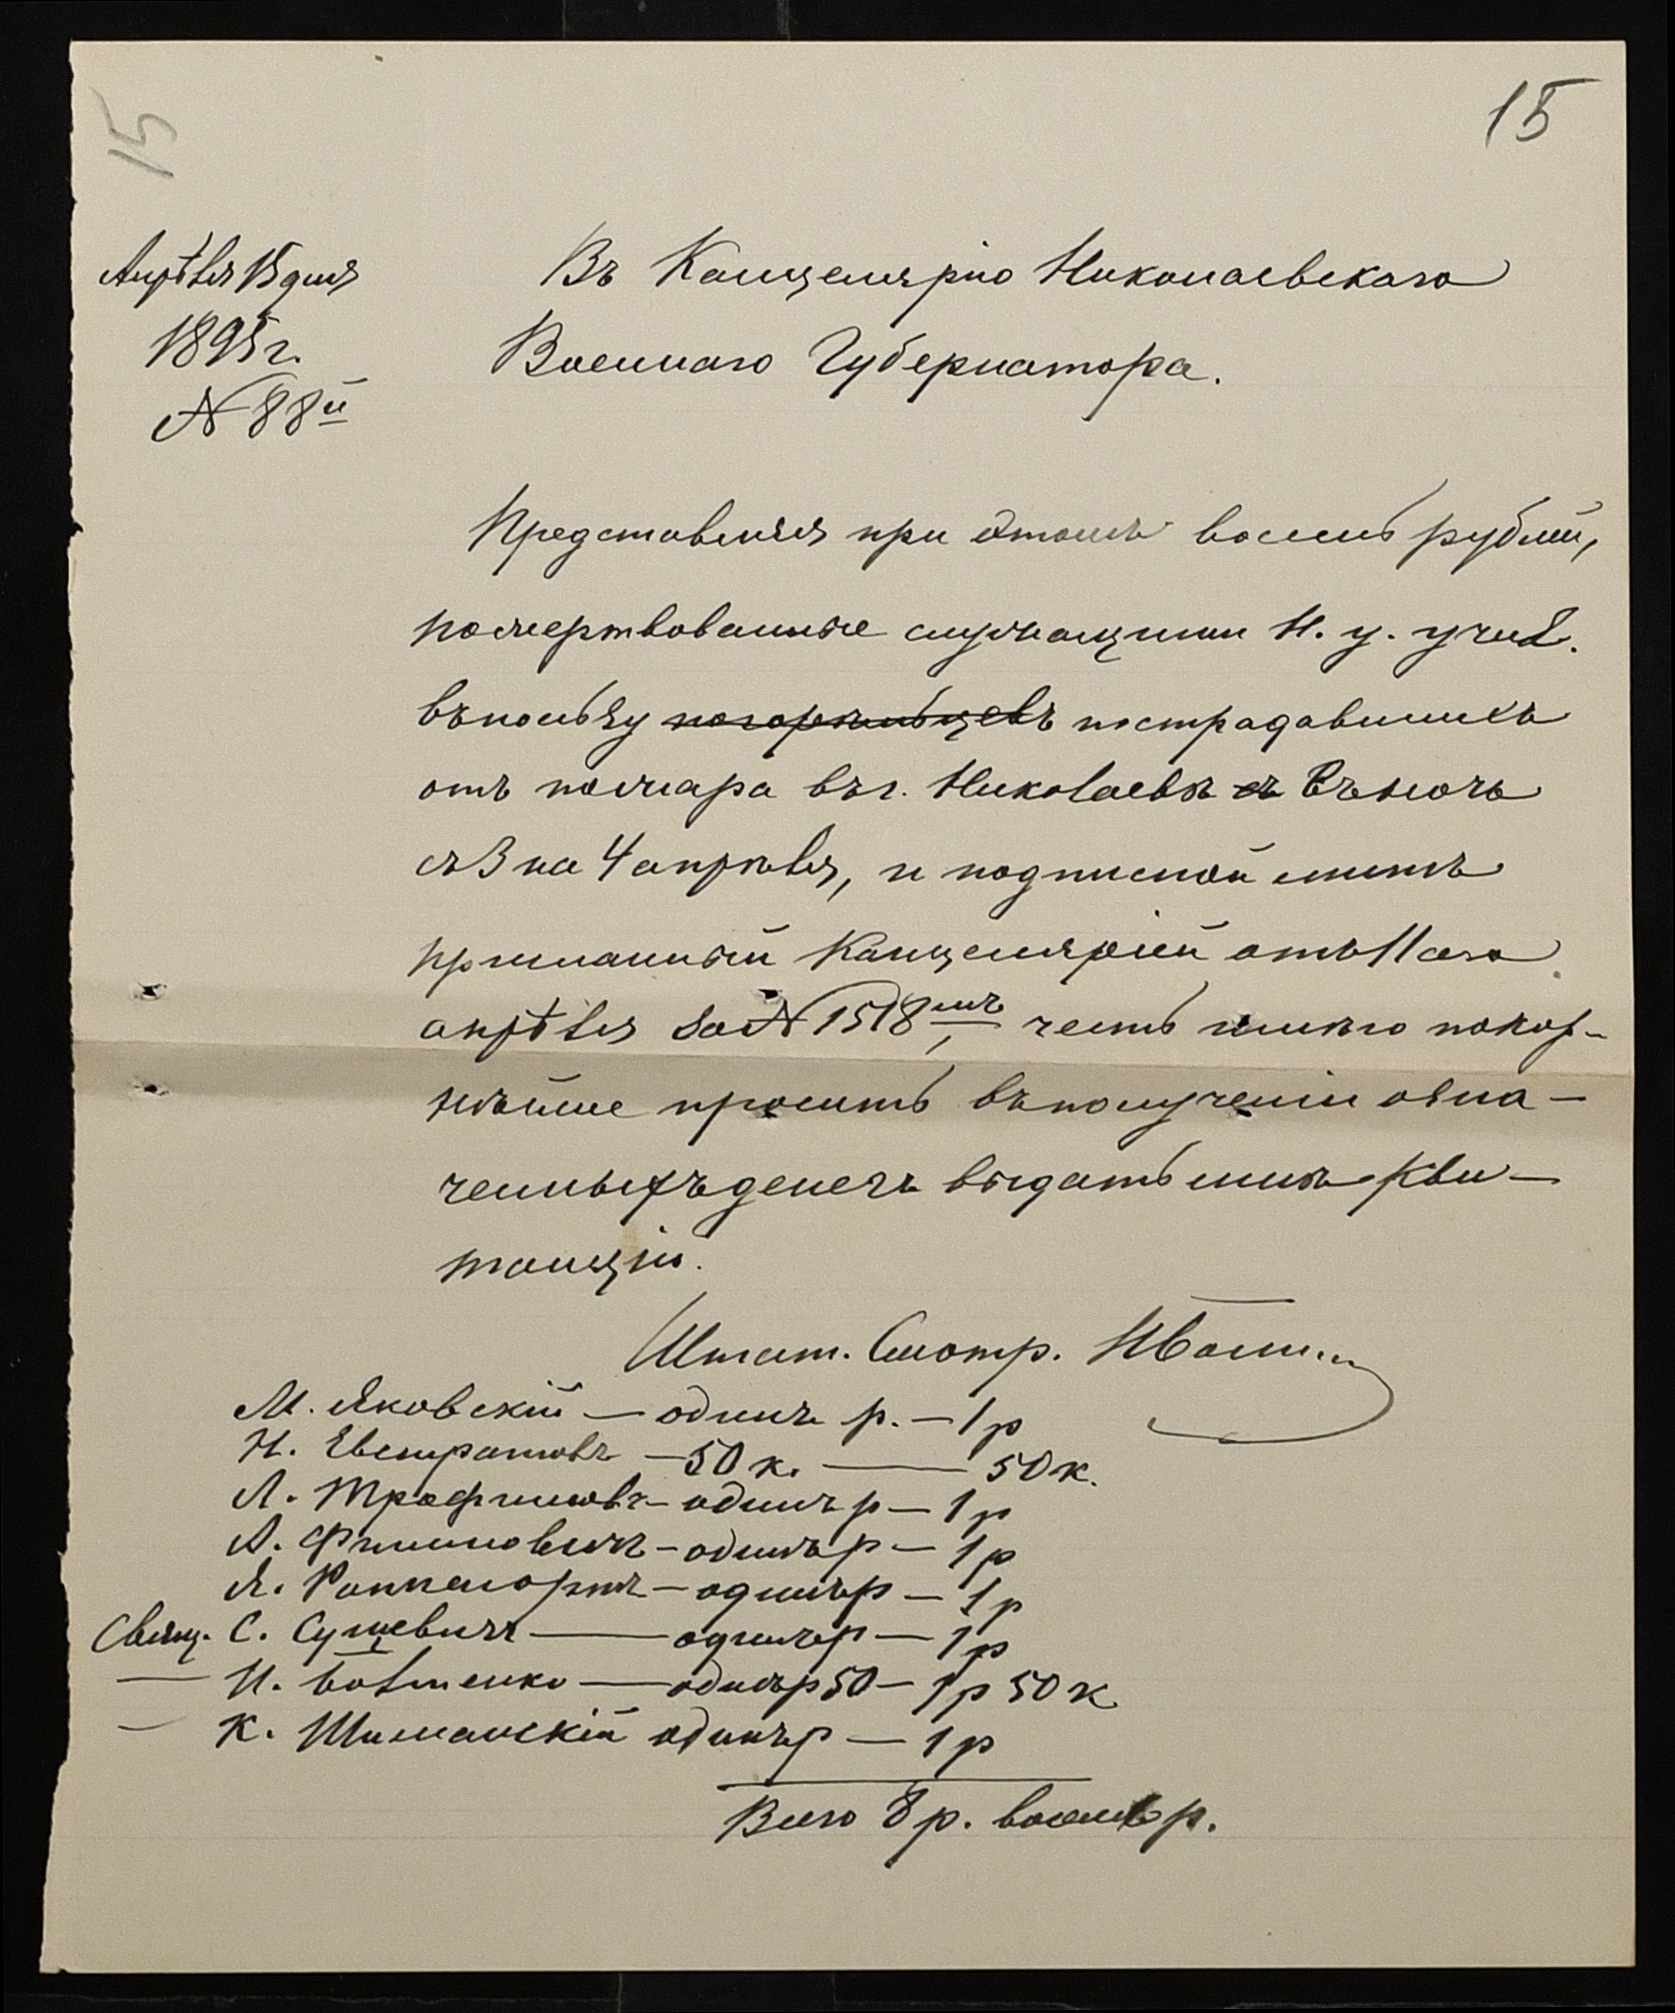 15
15
Апрѣля 15 дня
1895 г.
№ 88й
Въ Канцелярію Николаевскаго
Военнаго Губернатора.
Представляя при этомъ восемь рублей,
пожертвованные служащими Н. у. учил.
въ пользу погорѣльцевъ пострадавшихъ
отъ пожара въ г. Николаевѣ въ ночь
съ 3 на 4 апрѣля, и подписной листъ
присланный Канцеляріей отъ 11 сего
апрѣля за № 1518мъ, честь имѣю покор-
нѣйше просить въ полученіи озна-
ченныхъ денегъ выдать мнѣ кви-
танцію.
Штат. Смотр.
М. Яковскій — одинъ р. — 1 р
Н. Евстратовъ — 50 к. — 50 к.
Л. Трофимовъ — одинъ р — 1 р
А. Филиповичъ — одинъ р — 1 р
Я. Раппапортъ — одинъ р — 1 р
Свящ. С. Сущевичъ — одинъ р — 1 р
— И. Бовтенко — одинъ р 50 — 1 р 50 к
— К. Шиманскій одинъ р — 1 р
Всего 8 р. восемь р.